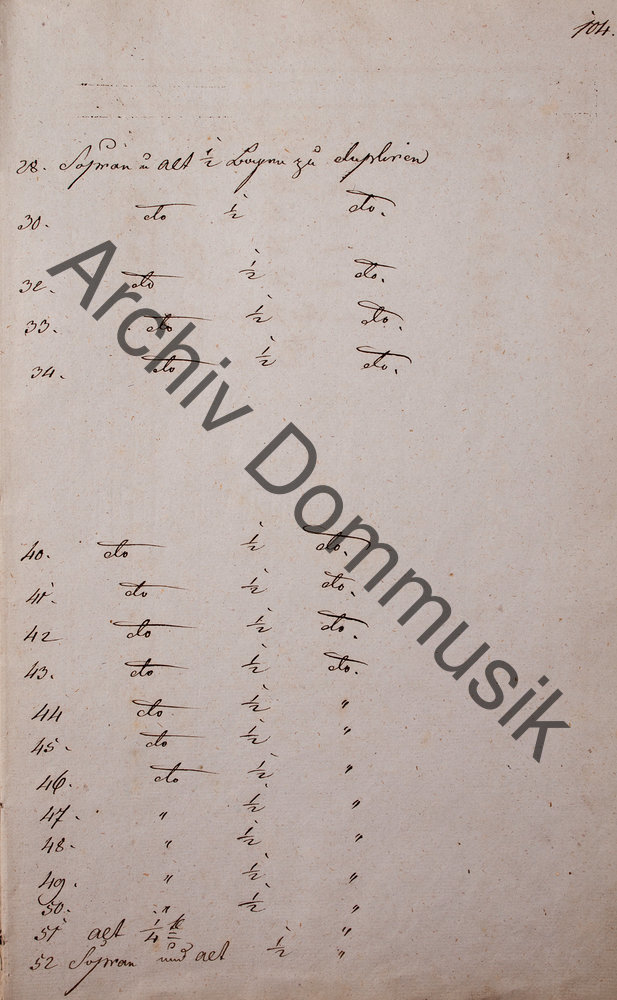 104.
28. Sopran u alt 1/2 Bogen zu dupliren
30. do 1/2 do.
32. do 1/2 do.
33. do 1/2 do.
34. do 1/2 do.
40. do 1/2 do.
41. do 1/2 do.
42 do 1/2 do.
43. do 1/2 do.
44 do 1/2 "
45. do 1/2 "
46. do 1/2 "
47. " 1/2 "
48. " 1/2 "
49. " 1/2 "
50. " 1/2 "
51 alt 1/4 "
52 Sopran und alt 1/2 "
Archiv Dommusik